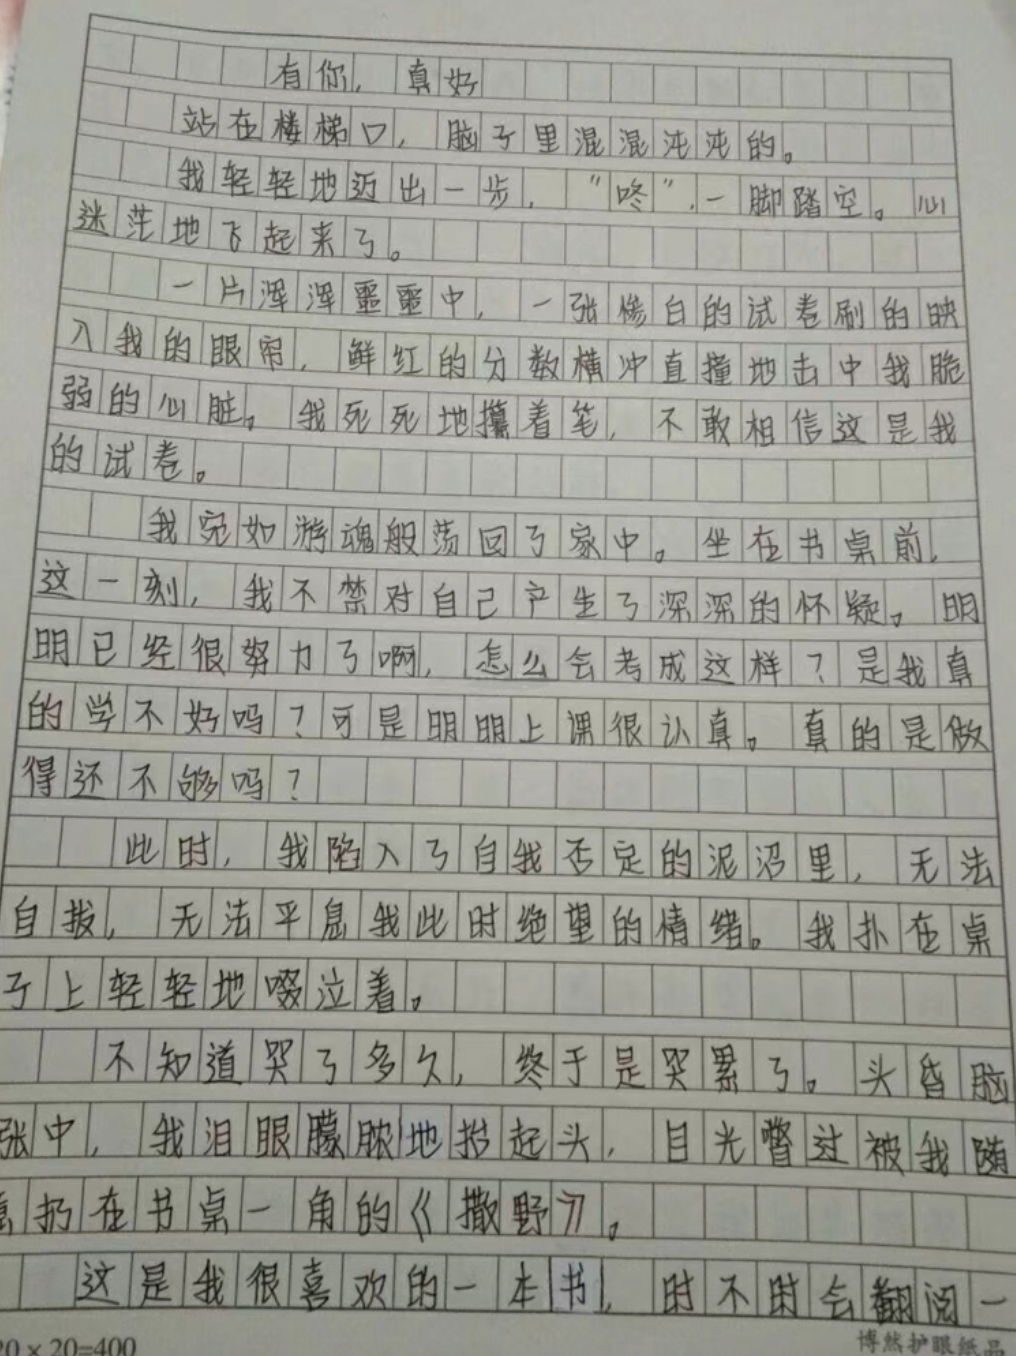 有你，真好
站在楼梯口，脑子里混混沌沌的。
我轻轻地迈出一步，“咚”，一脚踏空。心
迷茫地飞起来了。
一片浑浑噩噩中，一张惨白的试卷刷的映
入我的眼帘，鲜红的分数横冲直撞地击中我脆
弱的心脏。我死死地攥着笔，不敢相信这是我
的试卷。
我宛如游魂般荡回了家中。坐在书桌前，
这一刻，我不禁对自己产生了深深的怀疑。明
明已经很努力了啊，怎么会考成这样？是我真
的学不好吗？可是明明上课很认真。真的是做
得还不够吗？
此时，我陷入了自我否定的泥沼里，无法
自拔，无法平息我此时绝望的情绪。我扑在桌
子上轻轻地啜泣着。
不知道哭了多久，终于是哭累了。头昏脑
张中，我泪眼朦胧地抬起头，目光瞥过被我随
意扔在书桌一角的《撒野》。
这是我很喜欢的一本书，时不时会翻阅一
20×20=400
博然护眼纸品